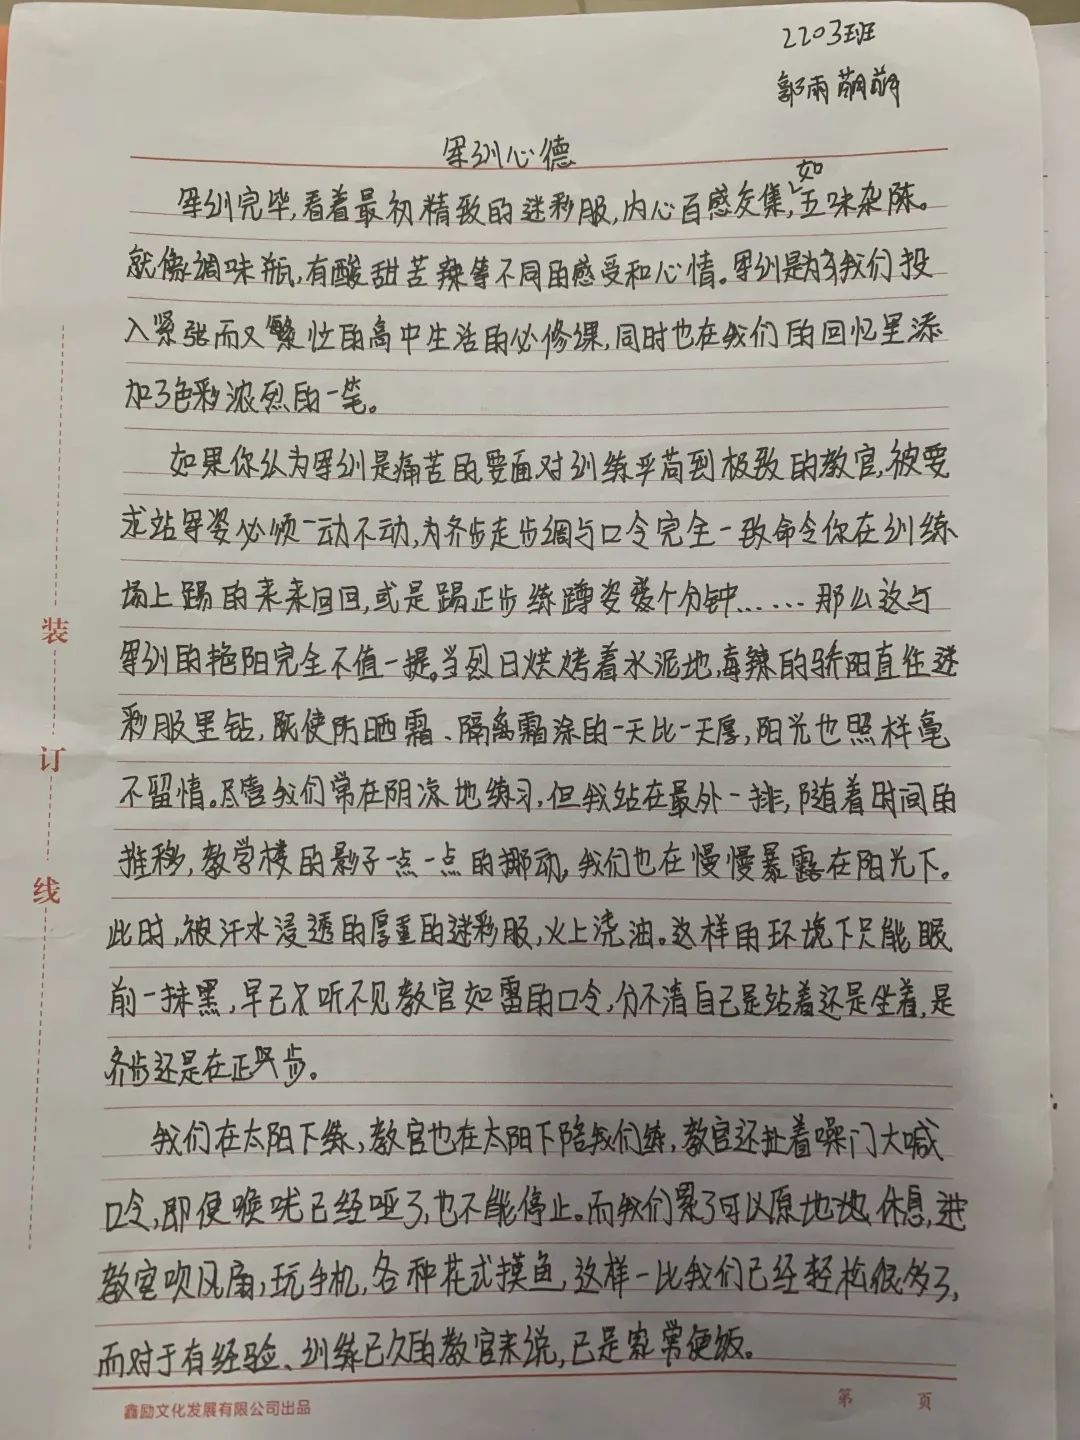 2203班
郭雨萌萌
军训心德
军训完毕,看着最初精致的迷彩服,内心百感交集,如五味杂陈。
就像调味瓶,有酸甜苦辣等不同的感受和心情。军训是为我们投
入紧张而又繁忙的高中生活的必修课,同时也在我们的回忆里添
加了色彩浓烈的一笔。
如果你认为军训是痛苦的,要面对训练严苛到极致的教官,被要
求站军姿必须一动不动,为齐步走步调与口令完全一致命令你在训练
场上踢的来来回回,或是踢正步练蹲姿整个分钟……那么这与
军训的艳阳完全不值一提。当烈日烘烤着水泥地,毒辣的骄阳直往迷
彩服里钻,既使防晒霜、隔离霜涂的一天比一天厚,阳光也照样毫
不留情。尽管我们常在阴凉地练习,但我站在最外一排,随着时间的
推移,教学楼的影子一点一点的挪动,我们也在慢慢暴露在阳光下。
此时,被汗水浸透的厚重的迷彩服,火上浇油。这样的环境下只能眼
前一抹黑,早已听不见教官如雷的口令,分不清自己是站着还是坐着,是
齐步还是在正步。
我们在太阳下练,教官也在太阳下陪我们练,教官还扯着嗓门大喊
口令,即使喉咙已经哑了,也不能停止。而我们累了可以原地休息,进
教室吹风扇,玩手机,各种花式摸鱼,这样一比我们已经轻松很多了,
而对于有经验、训练已久的教官来说,已是家常便饭。
装
订
线
鑫励文化发展有限公司出品
第 页